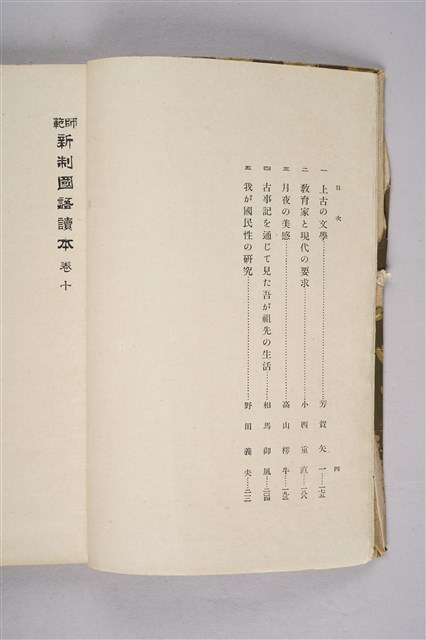 目次 四
上古の文學 芳賀矢一
教育家と現代の要求 小西重直
月夜の美感 高山樗牛
古事記を通じて見た吾が祖先の生活 相馬御風
我が國民性の研究 野田義夫
師範 新制國語讀本 巻十